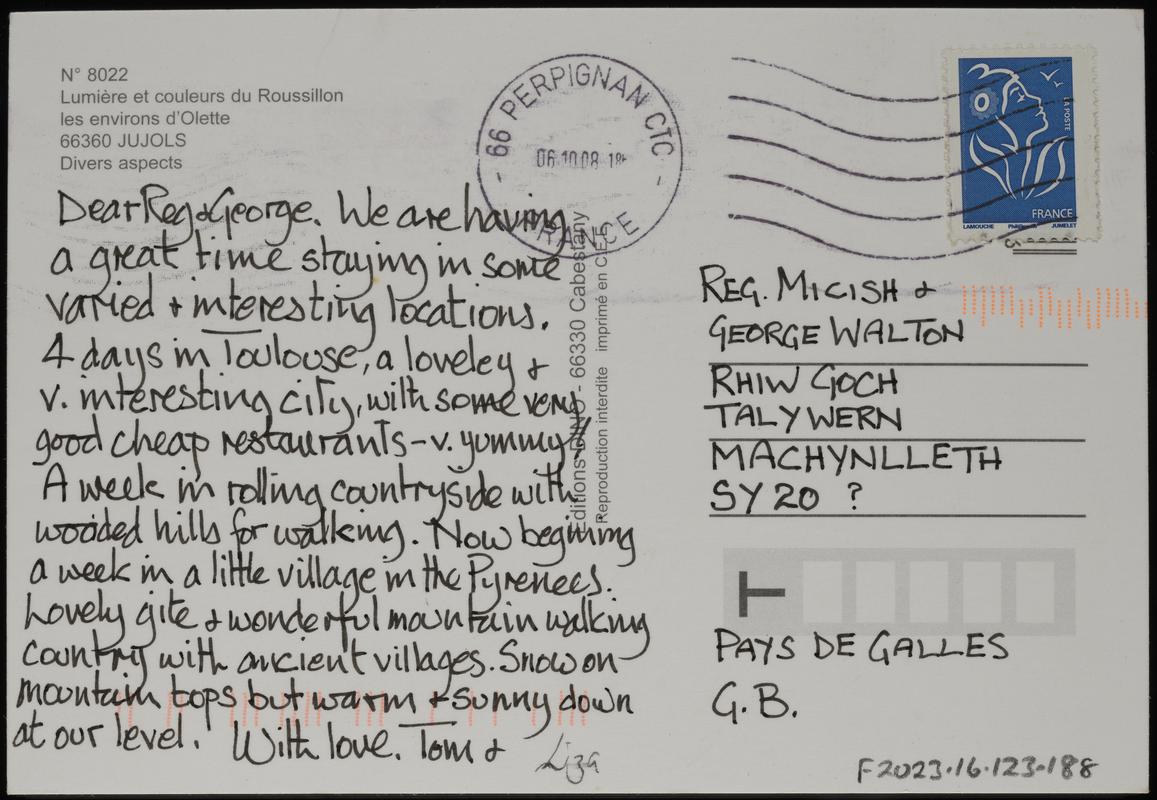 N° 8022
Lumière et couleurs du Roussillon
les environs d'Olette
66360 JUJOLS
Divers aspects
66 PERPIGNAN CTC
06.10.08
FRANCE
LA POSTE
FRANCE
LAMOUCHE JUMELET
Dear Reg & George. We are having
a great time staying in some
varied + interesting locations.
4 days in Toulouse, a loveley +
v. interesting city, with some very
good cheap restaurants - v. yummy!!
A week in rolling countryside with
wooded hills for walking. Now begining
a week in a little village in the Pyrenees.
Lovely gite & wonderful mountain walking
country with ancient villages. Snow on
mountain tops but warm + sunny down
at our level. With love. Tom &
Liza
Editions - 66330 Cabestany
Reproduction interdite imprimé en CEE
REG. MICISH &
GEORGE WALTON
RHIW GOCH
TALYWERN
MACHYNLLETH
SY20 ?
PAYS DE GALLES
G.B.
F2023.16.123.188